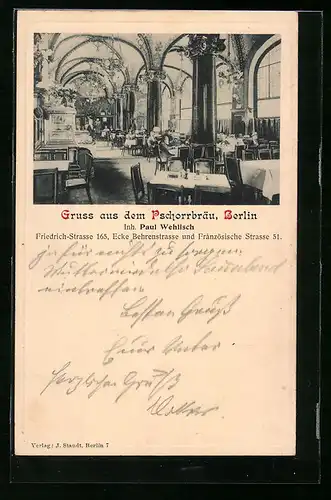 Gruss aus dem Pschorrbräu, Berlin
Inh. Paul Wehlisch
Friedrich-Strasse 165, Ecke Behrenstrasse und Französische Strasse 51.
ja für nichts zu sorgen.
eintreffen.
Besten Gruß
Euer Vater
herzlichen Gruß
Verlag: J. Staudt, Berlin 7